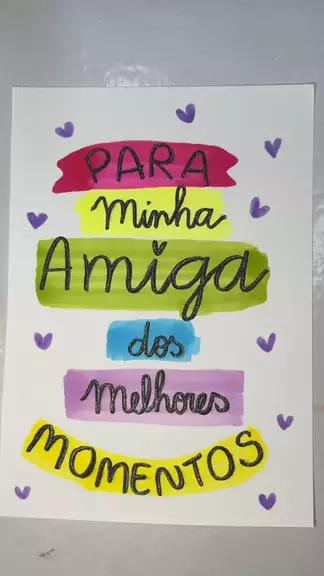 PARA
minha
Amiga
dos
melhores
MOMENTOS